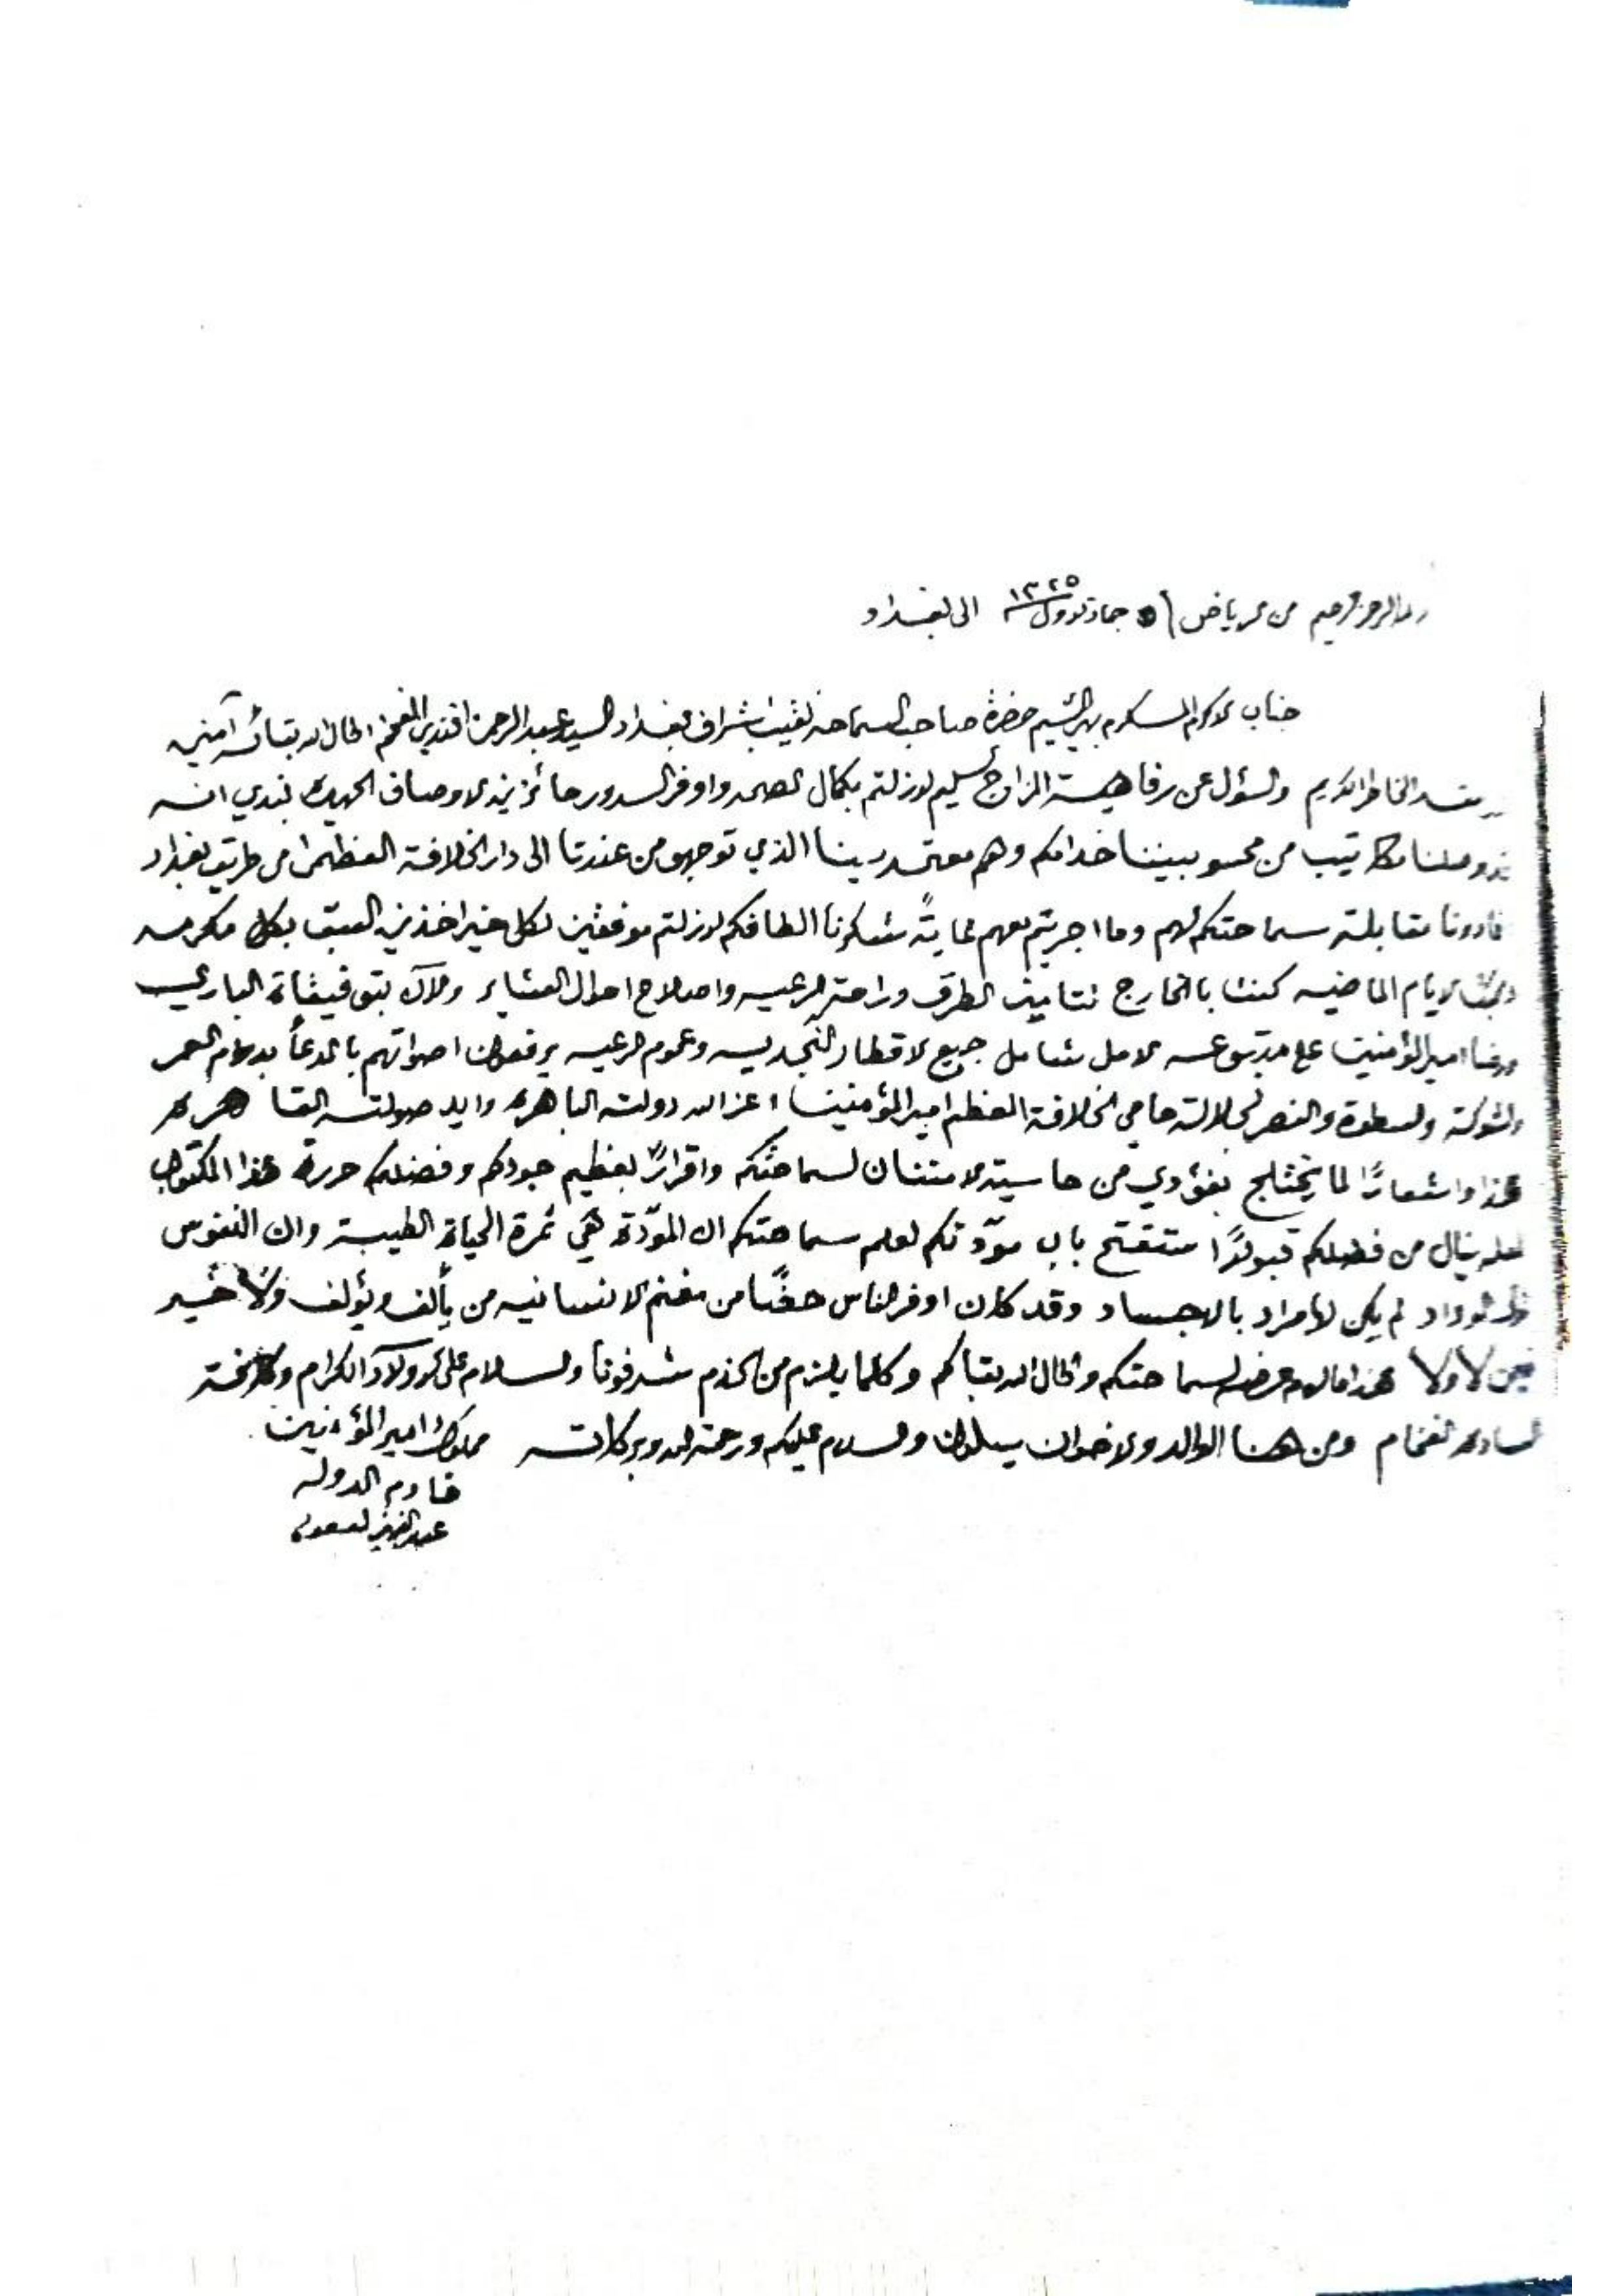 الرحمن الرحيم من الرياض ١٥ جماد الاول ١٣٢٥ الى بغداد
جناب الاكرم المكرم بهي الشيم حضرة صاحب السماحه نقيب اشراف بغداد السيد عبد الرحمن افندي المفخم اطال الله بقائه آمين
الخاطر الكريم والسؤل عن رفاهية المزاج السليم لازلتم بكمال الصحه واوفر السرور حائزين الاوصاف الحميده نبدي انه
وصلنا مكاتيب من محسوبيننا خدامكم وهم معتمدينا الذي توجهو من عندنا الى دار الخلافة العظما من طريق بغداد
مقابلة سماحتكم لهم وما اجريتم معهم غايةً شكرنا الطافكم لازلتم موفقين لكل خير اخذين السبق بكل مكرمه
الايام الماضيه كنت بالخارج لتامين الطرق وراحة الرعيه واصلاح احوال العشاير والان بتوفيقاة الباري
امير المؤمنين على متبوعه الامل شامل جميع الاقطار النجديه وعموم الرعيه يرفعون اصواتهم بالدعاً بدوام العمر
والشوكة والسطوة والنصر لجلالة حامي الخلافة العظم امير المؤمنين اعز الله دولته الباهره وايد صولته القاهره
هذا واشعارًا لما يختلج بفؤدي من حاسية الامتنان لسماحتكم واقرارًا بعظيم جودكم وفضلكم حررة هذا المكتوب
لعله ينال من فضلكم قبولاً متفتح باب مودّتكم لعلم سماحتكم ان المودّة هي ثمرة الحياة الطيبة وان النفوس
لم يكن لها مراد بالاجساد وقد كان اوفر الناس حظًا من مغنم الانسانيه من يألف ويؤلف ولا خير
لا ولا هذا مالزم عرضه لسماحتكم واطال الله بقاكم وكلما يلزم من الخدم شرفونا والسلام على الاولاد الكرام وكافة
الساده الفخام ومن هنا الوالد والاخوان يسلمون والسلام عليكم ورحمة الله وبركاته مملوك امير المؤمنين
خادم الدوله
عبد العزيز السعود